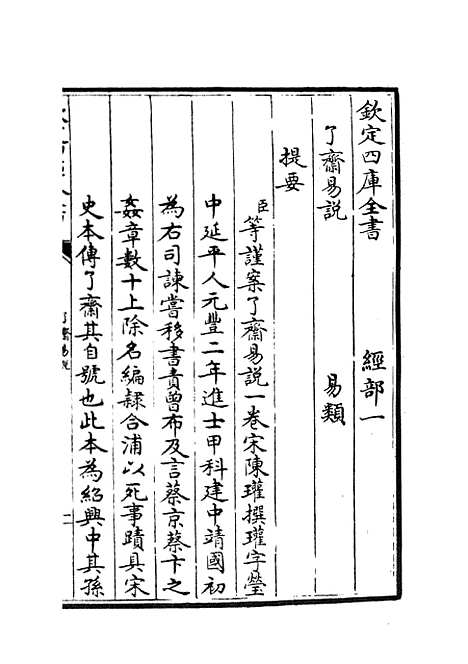 欽定四庫全書　經部一
了齋易說　易類
提要
臣等謹案了齋易說一卷宋陳瓘撰瓘字瑩
中延平人元豐二年進士甲科建中靖國初
為右司諫嘗移書責曾布及言蔡京蔡卞之
姦章數十上除名編隷合浦以死事蹟具宋
史本傳了齋其自號也此本為紹興中其孫
了齋易說